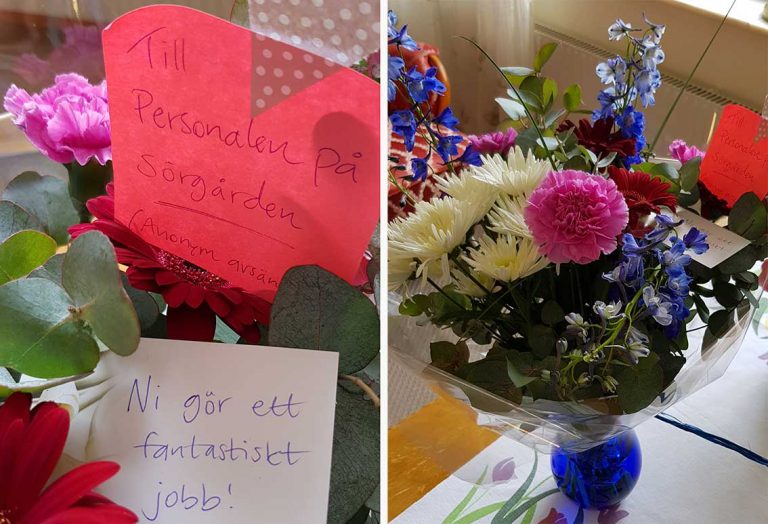 Till
Personalen på
Sörgården
(Anonym
Ni gör ett
fantastiskt
jobb!
Till
Personalen
Sörgården